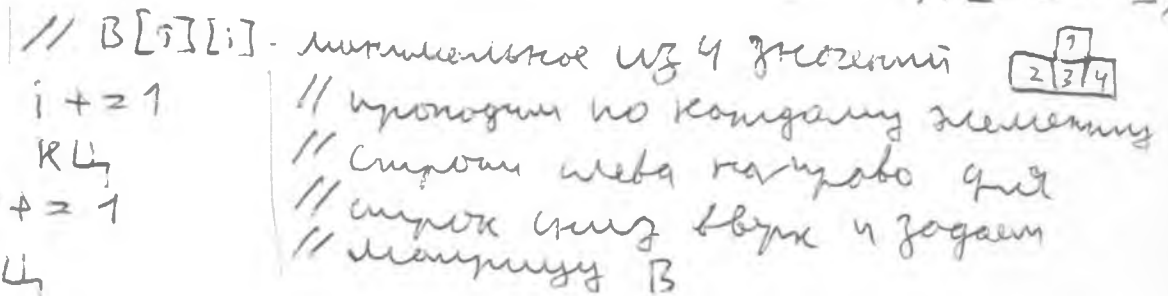 // B[j][i] - минимальное из 4 значений 1 2 3 4
i += 1 // проходим по каждому элементу
КЦ // строки слева направо для
+= 1 // строк снизу вверх и задаем
Ц // матрицу B